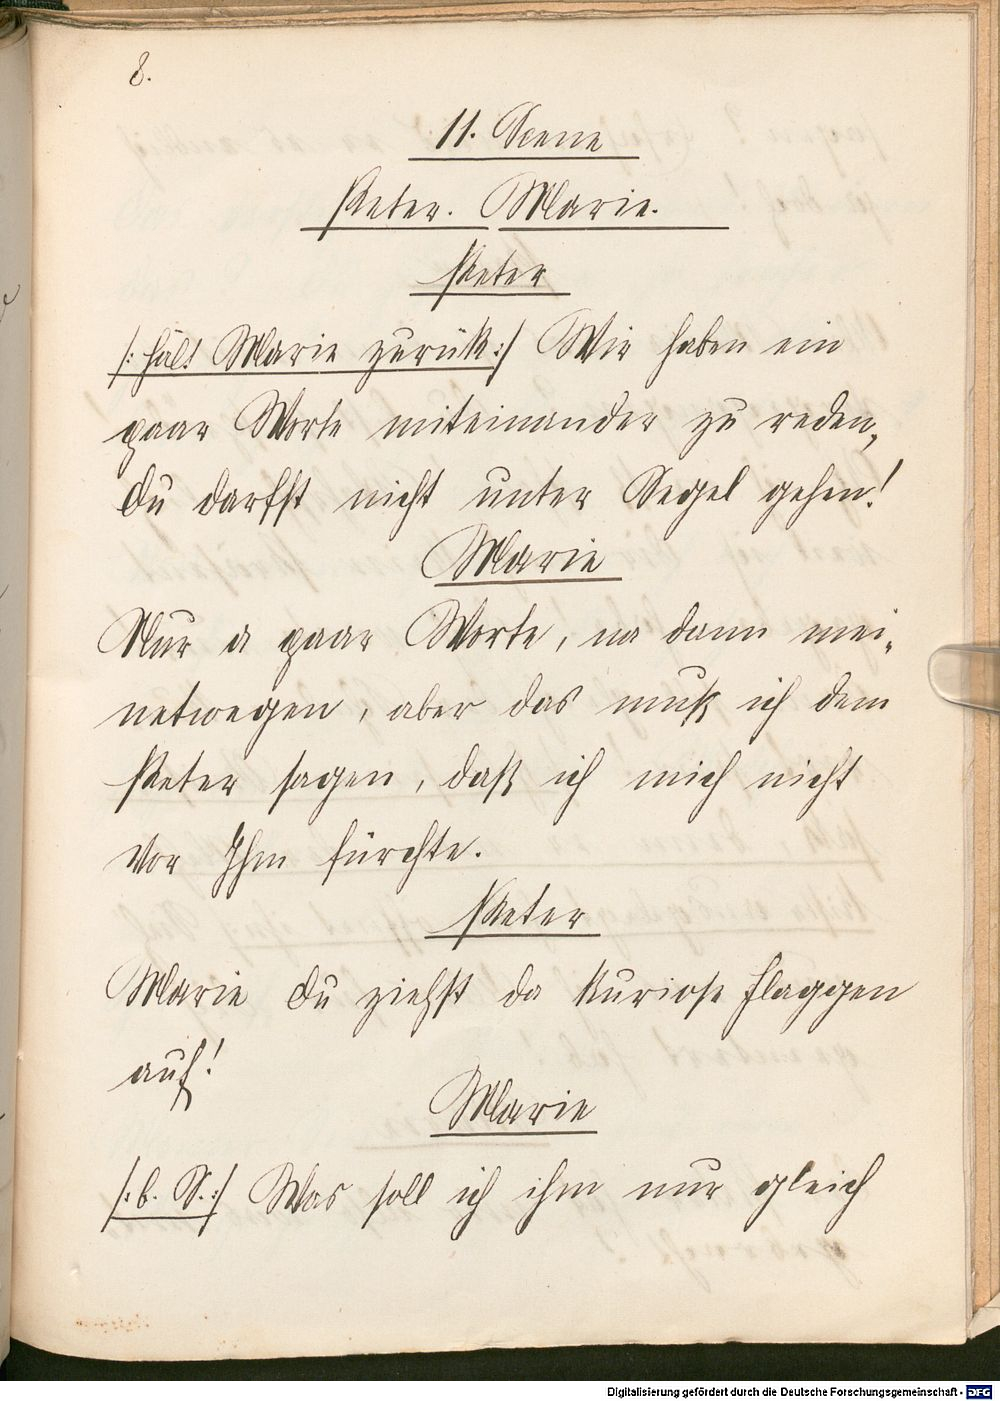 8.
11. Scene
Peter. Marie.
Peter
/: hält Marie zurük :/ Wir haben ein
paar Worte miteinander zu reden,
du darfst nicht unter Segel gehen!
Marie
Nur a paar Worte, na dann mei-
netwegen, aber das muß ich dem
Peter sagen, daß ich mich nicht
vor Ihm fürchte.
Peter
Marie du ziehst da kuriose Flaggen
auf!
Marie
/: b. S. :/ Was soll ich ihm nur gleich
Digitalisierung gefördert durch die Deutsche Forschungsgemeinschaft - DFG